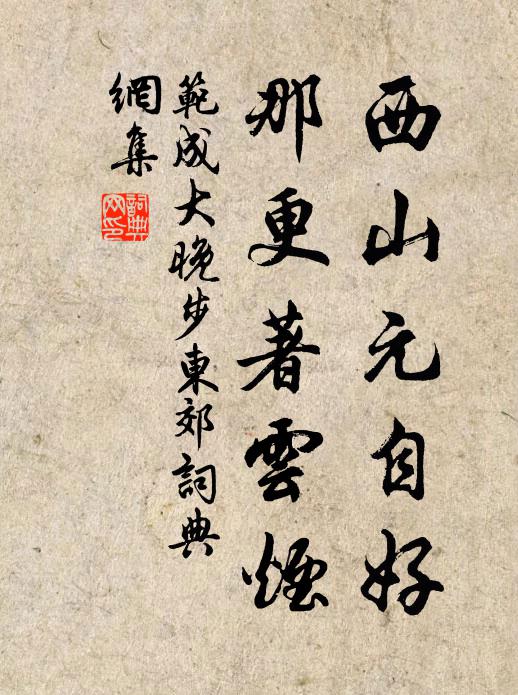 西山元自好
那更著雲煙
範成大晚步東郊詞典
網集
詞典
网印